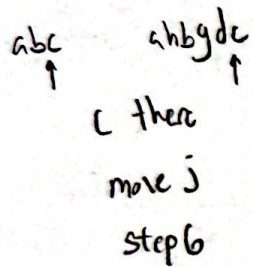 abc ahbgdc
c there
move j
step 6